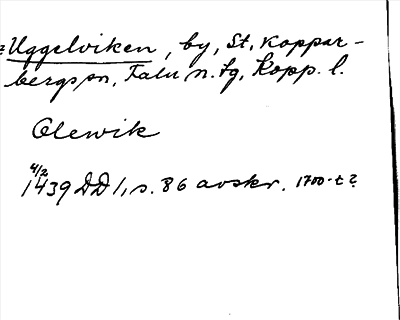 Uggelviken, by, St. Koppar-
bergs sn, Falu n. tg, Kopp. l.
Olewik
4/2
1439 DD 1, s. 86 avskr. 1700-t?